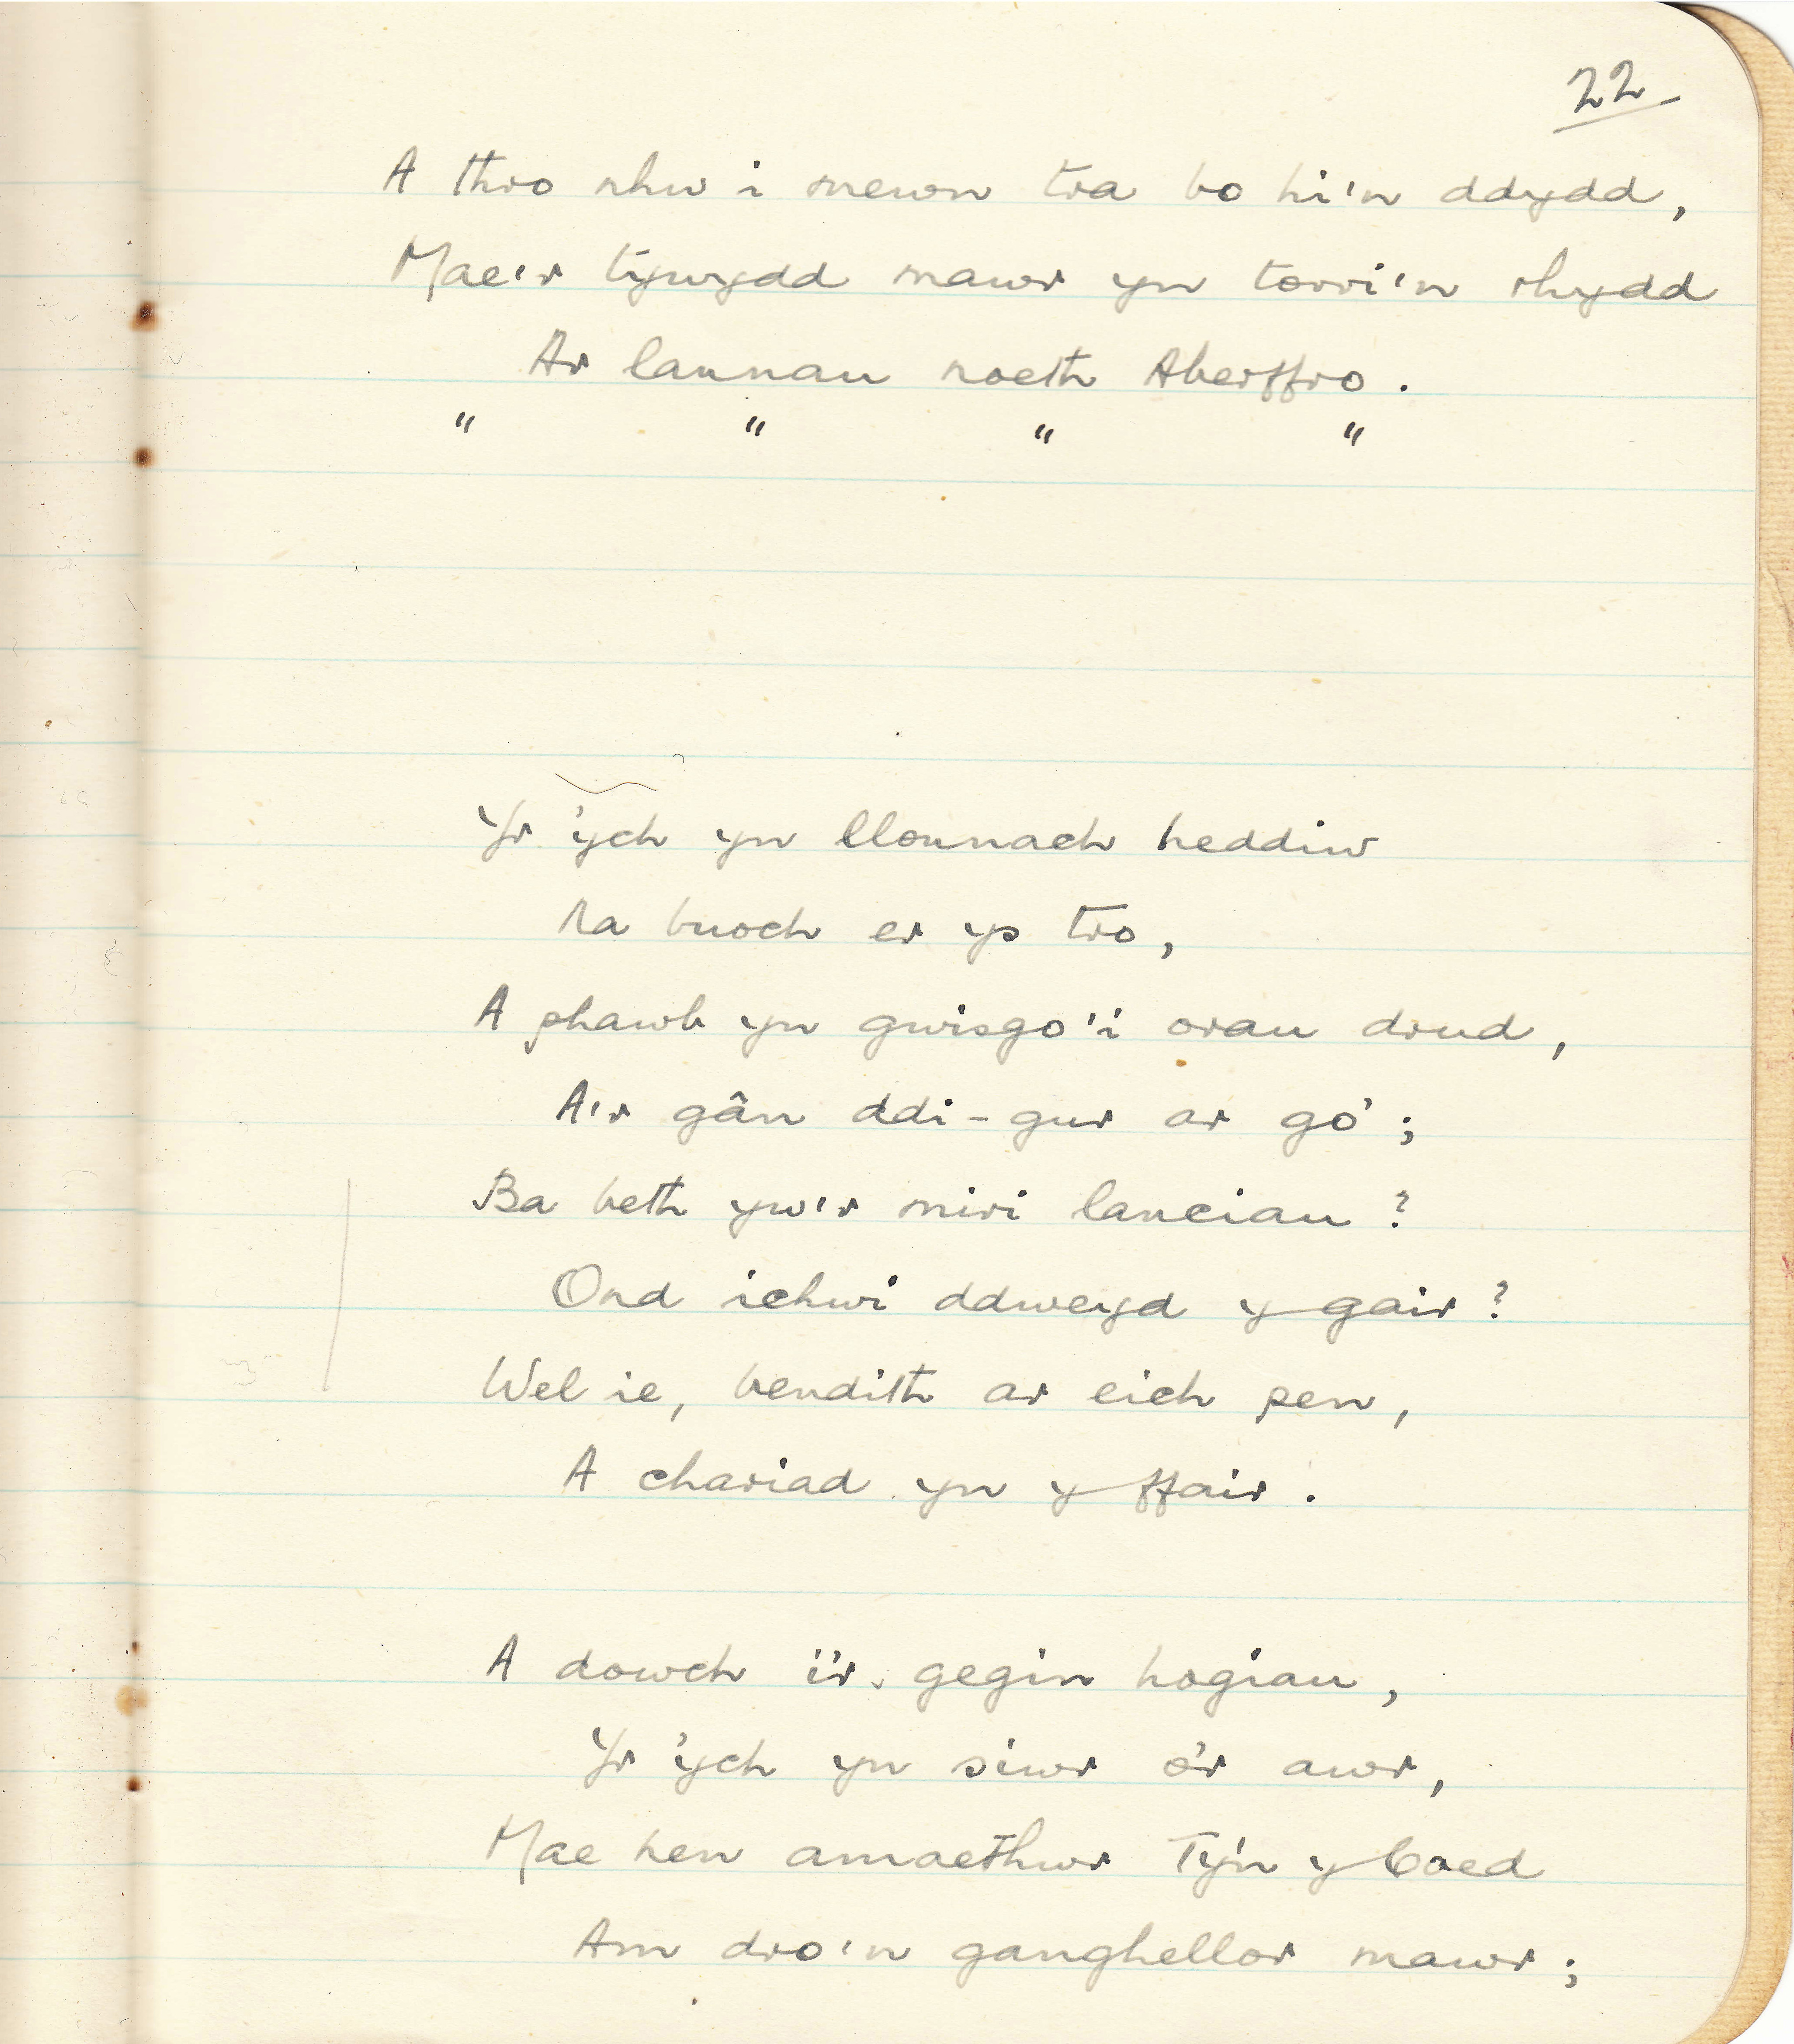 22
A thro nhw i mewn tra bo hi'n ddydd,
Mae'r tywydd mawr yn torri'n rhydd
Ar lannau noeth Aberffro.
" " " "
Yr 'ych yn llonnach heddiw
Na buoch er ys tro,
A phawb yn gwisgo'i orau drud,
A'r gân ddi-gur ar go';
Ba beth yw'r miri lanciau?
Ond ichwi ddweyd y gair?
Wel ie, bendith ar eich pen,
A chariad yn y ffair.
A dowch i'r gegin hogiau,
Yr 'ych yn siwr o'r awr,
Mae hen amaethwr Ty'n y Coed
Am dro'n ganghellor mawr;